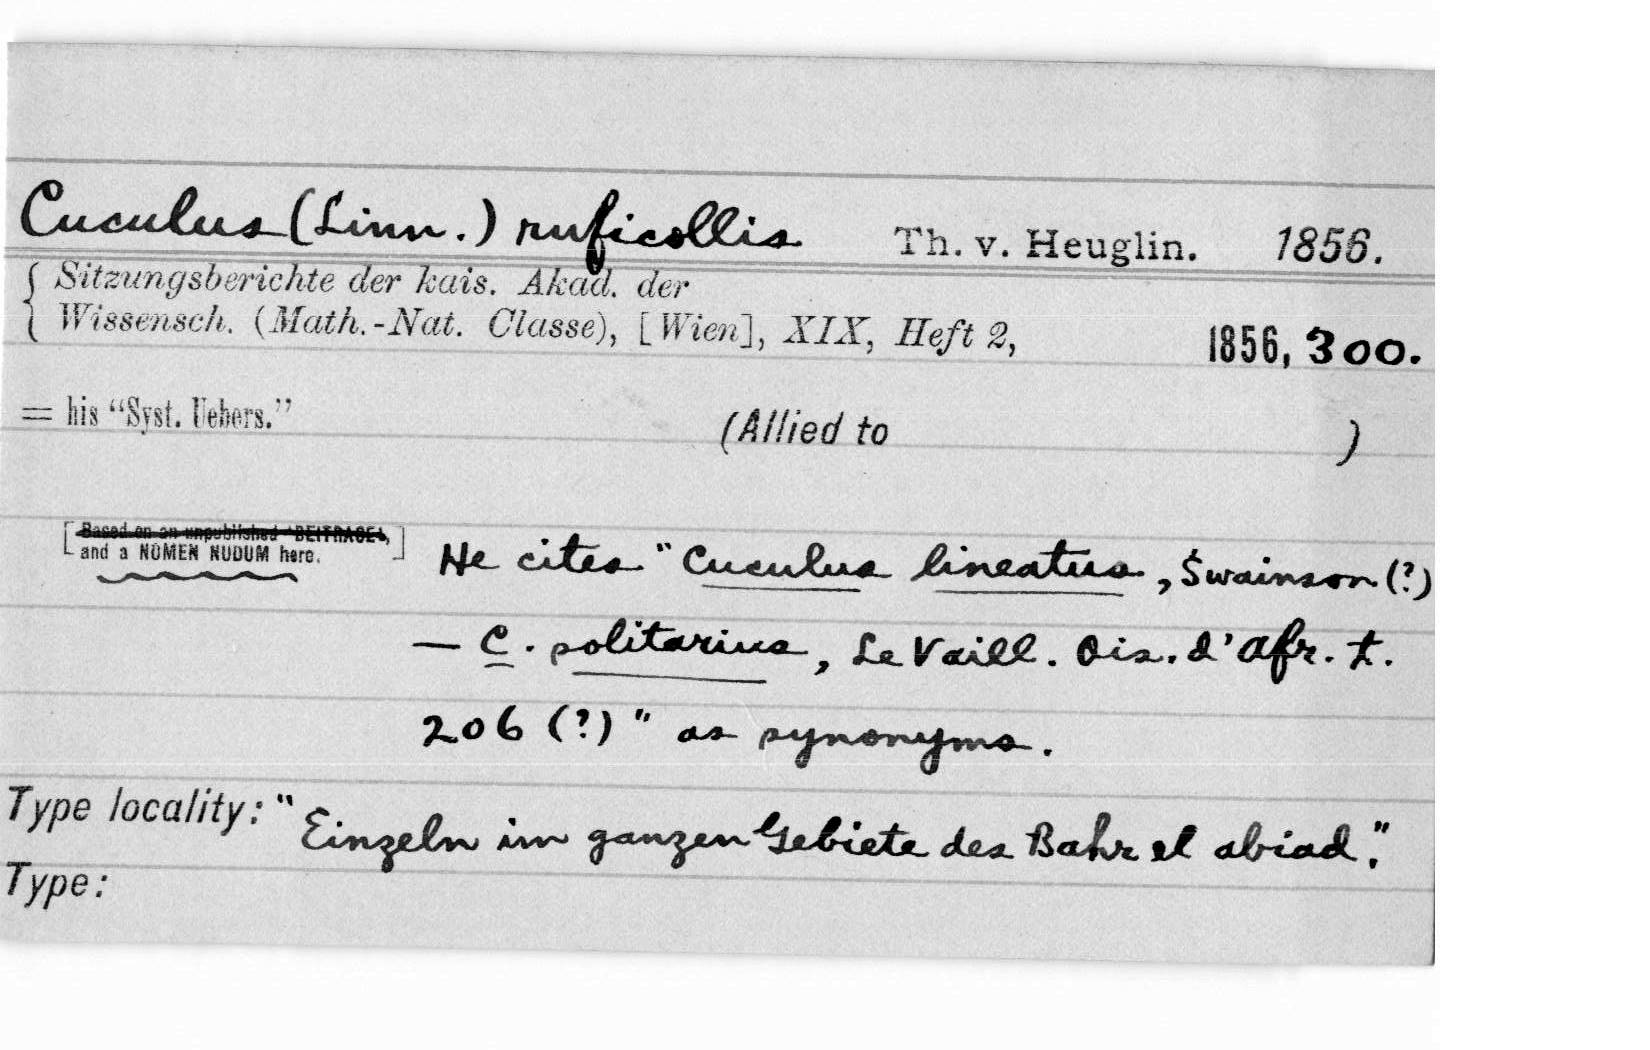 Cuculus (Linn.) ruficollis Th. v. Heuglin. 1856.
{ Sitzungsberichte der kais. Akad. der
Wissensch. (Math.-Nat. Classe), [Wien], XIX, Heft 2, 1856, 300.
= his "Syst. Uebers." (Allied to )
[Based on an unpublished "BEITRAGE",
and a NOMEN NUDUM here.] He cites "Cuculus lineatus, Swainson (?)
— C. politarius, Le Vaill. Ois. d'Afr. t.
206 (?)" as synonyms.
Type locality: "Einzeln im ganzen Gebiete des Bahr el abiad."
Type: